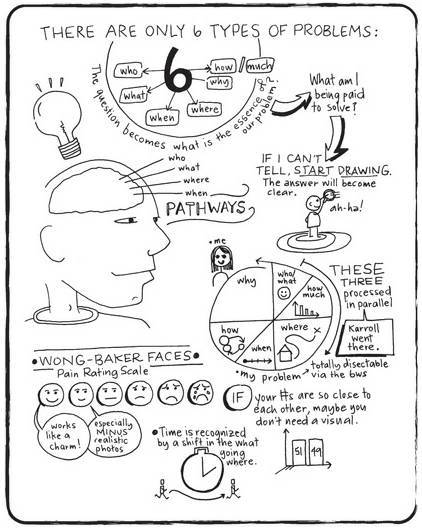 THERE ARE ONLY 6 TYPES OF PROBLEMS:
6
who
what
when
where
why
how / much
The question becomes what is the essence of our problem?
What am I
being paid
to solve?
IF I CAN'T
TELL, START DRAWING.
The answer will become
clear.
ah-ha!
who
what
where
when
PATHWAYS
• me
why
who/
what
how
much
where
when
how
THESE
THREE
processed
in parallel
Karroll
went
there.
• my problem → totally disectable
via the 6ws
• WONG-BAKER FACES •
Pain Rating Scale
works
like a
charm!
especially
MINUS
realistic
photos
IF your #s are so close to
each other, maybe you
don't need a visual.
51 49
• Time is recognized
by a shift in the what
going
where.